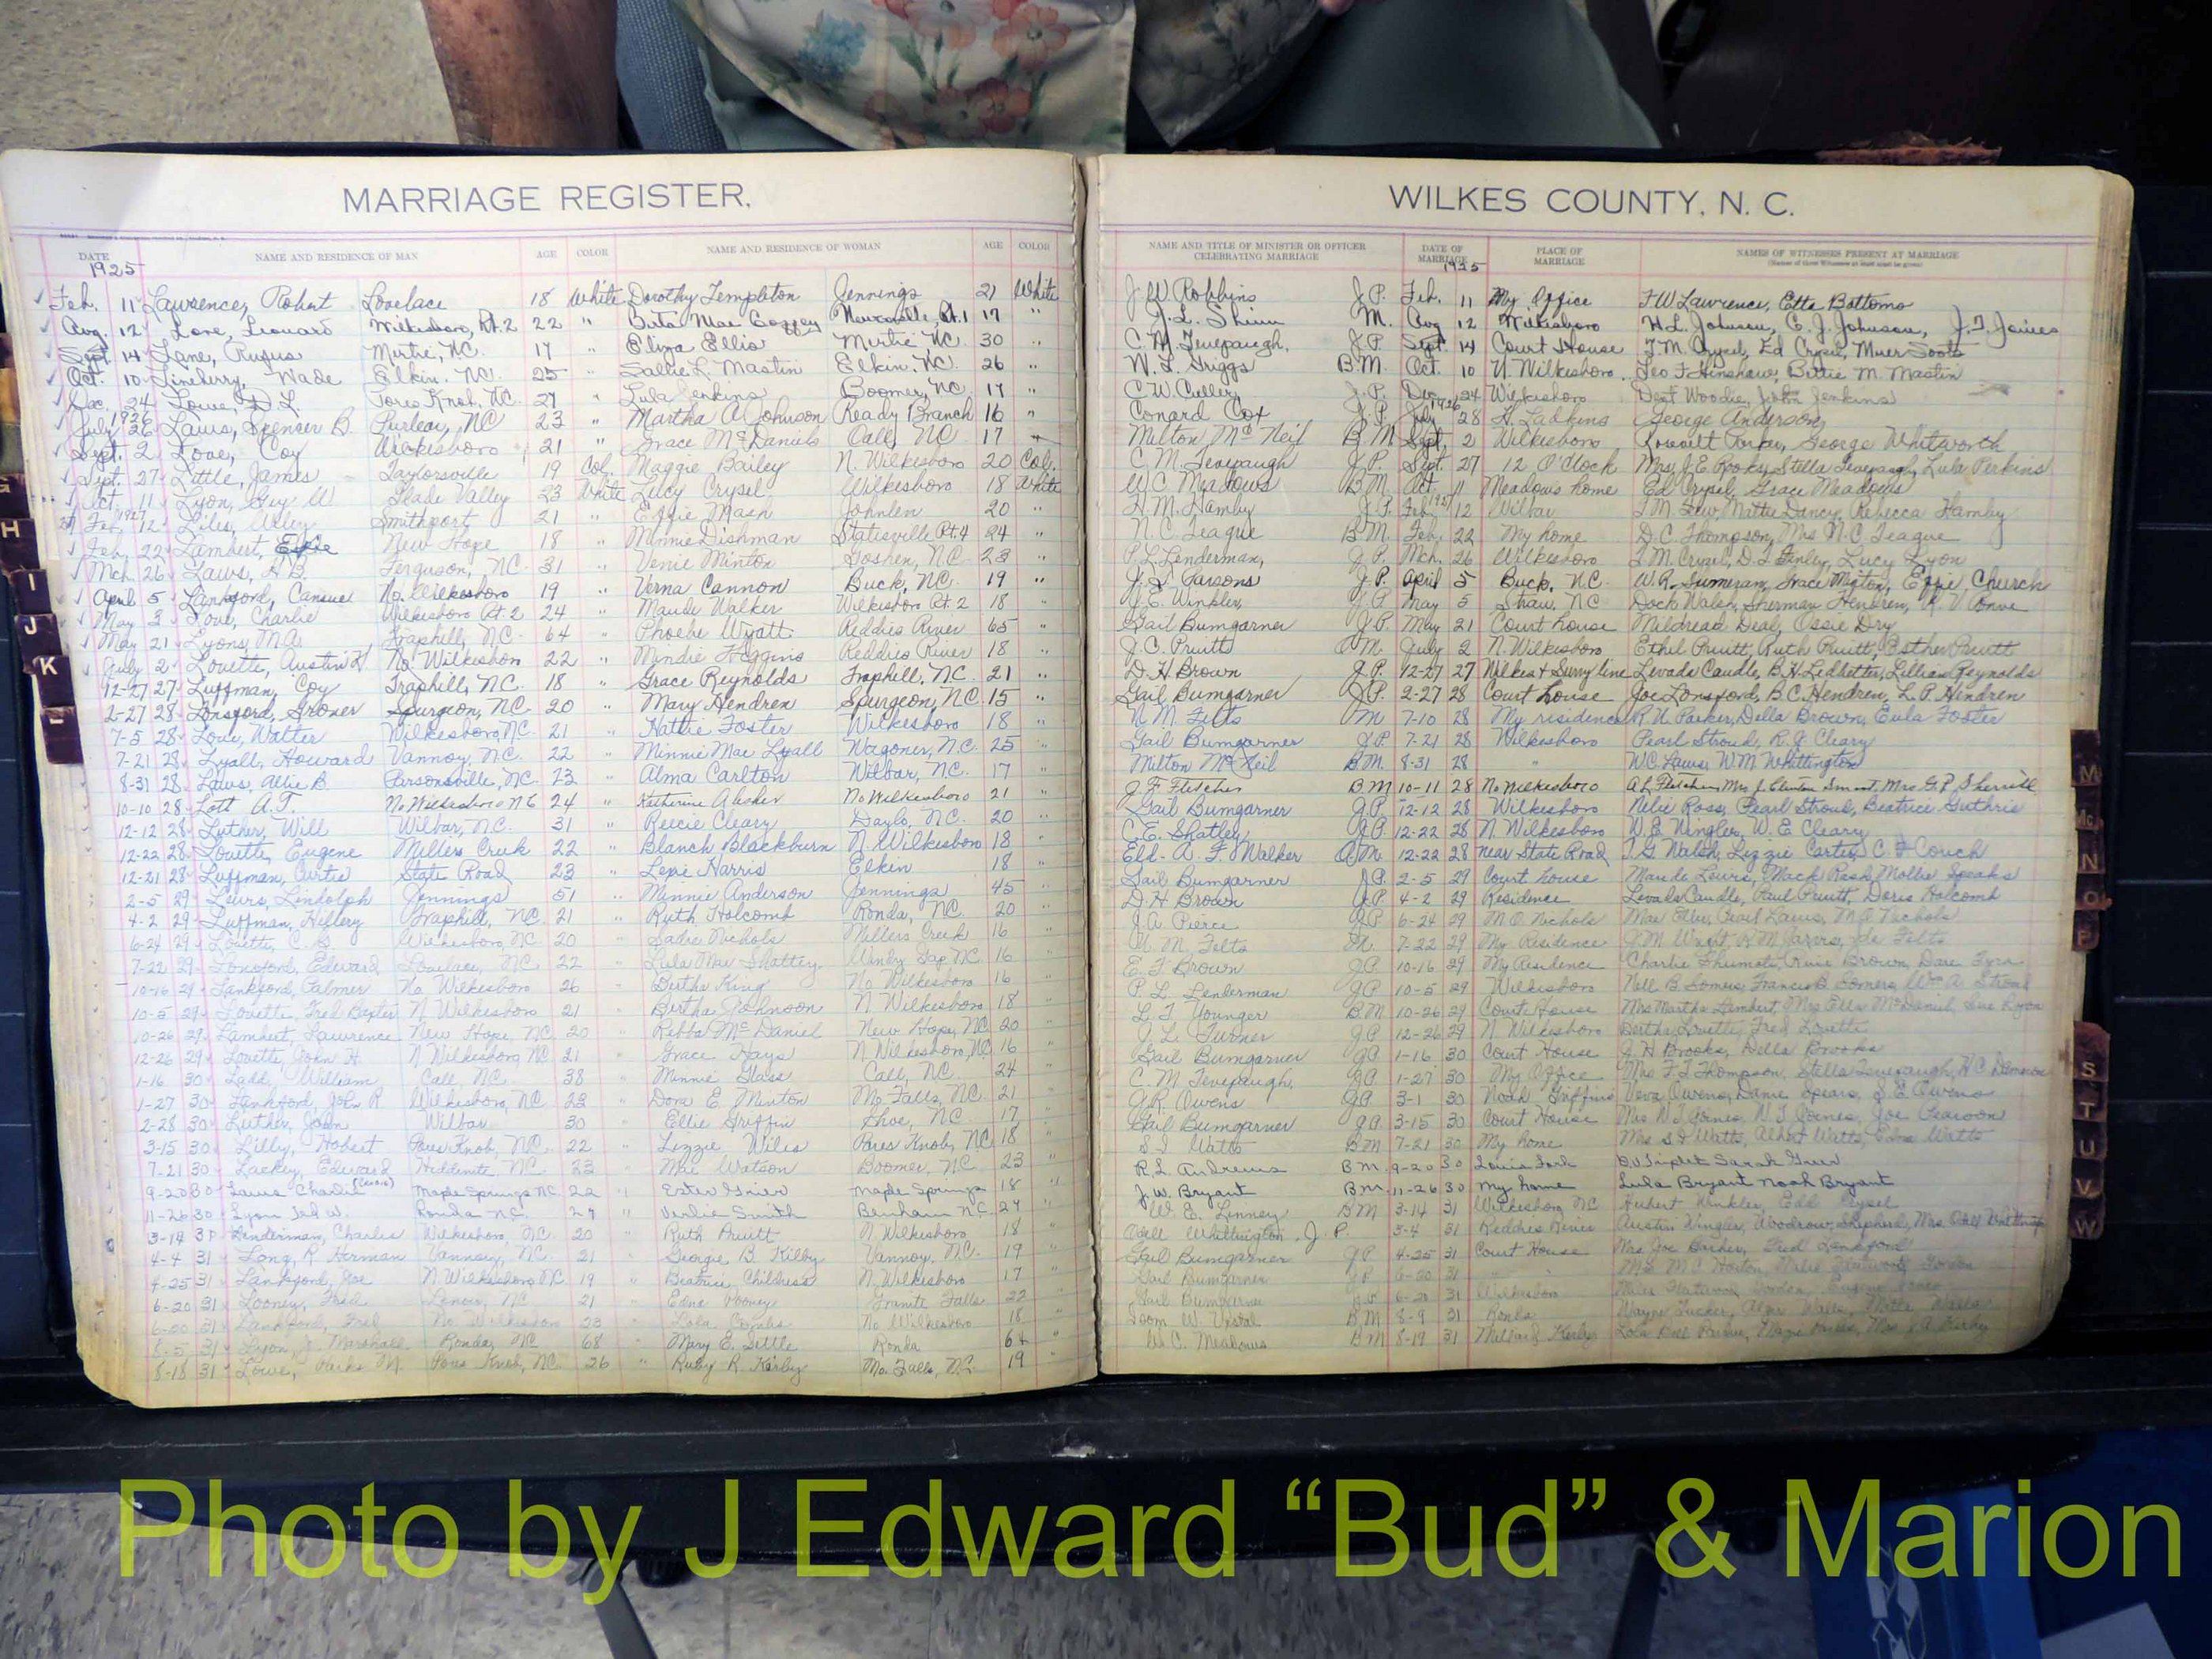 MARRIAGE REGISTER.
WILKES COUNTY, N. C.
DATE NAME AND RESIDENCE OF MAN AGE COLOR NAME AND RESIDENCE OF WOMAN AGE COLOR
NAME AND TITLE OF MINISTER OR OFFICER CELEBRATING MARRIAGE DATE OF MARRIAGE PLACE OF MARRIAGE NAMES OF WITNESSES PRESENT AT MARRIAGE
1925
1925
Feb. 11 Lawrence, Robert Lovelace 18 White Dorothy Templeton Jennings 21 White J. W. Robbins J.P. Feb. 11 My Office F W Lawrence, Etta Bottoms
Aug. 12 Love, Leonard Wilkesboro, Rt. 2 22 " Mae Coffey Rt. 1 17 " J. L. Shinn M. Aug 12 Wilkesboro H. L. Johnson, C. J. Johnson, J. T. Joines
Sept. 14 Lane, Rufus Mertie, N.C. 17 " Eliza Ellis Mertie N.C. 30 " C. M. Tevepaugh, J.P. Sept. 14 Court House T. M. Crysel, Ed Crysel,
Oct. 10 Lineberry, Wade Elkin, N.C. 25 " Sallie L. Mastin Elkin, N.C. 26 " W. L. Griggs B.M. Oct. 10 N. Wilkesboro Geo F. Hinshaw, Bettie M. Mastin
Dec. 24 Lowe, D. L. Pores Knob, N.C. 27 " Lula Jenkins Boomer, N.C. 17 " C. W. Culler, J.P. Dec 24 Wilkesboro Dent Woodie, John Jenkins
1926
1926
July 26 Laws, Spenser B. Purlear, N.C 23 " Martha A. Johnson Ready Branch 16 " Conard Cox J.P. July 28 George Anderson
Sept. 2 Love, Coy Wilkesboro 21 " Grace McDaniels Call, N.C. 17 " Milton McNeil B M Sept. 2 Wilkesboro George Whitworth
Sept. 27 Little, James Taylorsville 19 Col. Maggie Bailey N. Wilkesboro 20 Col. C. M. Tevepaugh J.P. Sept. 27 12 O'Clock Mrs. J. E. Rooks, Stella Tevepaugh, Lula Perkins
Oct. 11 Lyon, Guy W. Glade Valley 23 White Lucy Crysel Wilkesboro 18 White W C Meadows B M Oct. 11 Meadows home Ed Crysel, Grace Meadows
1927
1927
Feb. 12 Liles, Smithport 21 " Effie Mash 20 " H. M. Hamby J.P. Feb 12 Wilbar Mattie Dancy, Rebecca Hamby
Feb. 22 Lambert, New Hope 18 " Minnie Dishman Statesville Rt. 4 24 " N. C. Teague B M. Feb. 22 My home D. C. Thompson, Mrs N. C. Teague
Mch. 26 Laws, Ferguson, N.C. 31 " Venie Minton Goshen, N.C. 23 " P. L. Lenderman, J.P. Mch. 26 Wilkesboro T. M. Crysel, D. J. Finley, Lucy Lyon
April 5 Lankford, No. Wilkesboro 19 " Verna Cannon Buck, N.C. 19 " Parsons J.P. April 5 Buck, N.C. Effie Church
May 3 Love, Charlie Wilkesboro Rt. 2 24 " Maude Walker Wilkesboro Rt. 2 18 " J. E. Winkler, J.P. May 5 Straw, N.C Dock Walsh, Sherman Hendren,
May 21 Lyons, M. A. Traphill, N.C. 64 " Phoebe Wyatt Reddies River 65 " Gail Bumgarner J.P. May 21 Court house Mildread Deal, Ossie Dry
July 2 Lovette, Austin H. No. Wilkesboro 22 " Mindie Higgins Reddies River 18 " J. C. Pruitt M. July 2 N. Wilkesboro Ethel Pruitt, Ruth Pruitt, Esther Pruitt
12-27 27 Luffman, Coy Traphill, N.C. 18 " Grace Reynolds Traphill, N.C. 21 " D. H. Brown J.P. 12-27 27 Wilkes & Surry line Levada Caudle, B. H. Ledbetter, Lillian Reynolds
2-27 28 Lonsford, Grover Spurgeon, N.C 20 " Mary Hendren Spurgeon, N.C. 15 " Gail Bumgarner J.P. 2-27 28 Court house Joe Lonsford, B. C. Hendren, L. P. Hendren
7-5 28 Love, Walter Wilkesboro, N.C. 21 " Hattie Foster Wilkesboro 18 " N. M. Felts M 7-10 28 My residence R. N. Parker, Della Brown, Eula Foster
7-21 28 Lyall, Howard Vannoy, N.C. 22 " Minnie Mae Lyall Wagoner, N.C. 25 " Gail Bumgarner J.P. 7-21 28 Wilkesboro Pearl Stroud, R. J. Cleary
8-31 28 Laws, Allie B. Parsonsville, N.C 23 " Alma Carlton Wilbar, N.C. 17 " Milton McNeil B.M. 8-31 28 " W C Laws, W M Whittington
10-10 28 Lott A. T. No Wilkesboro N C 24 " Katherine Absher No Wilkesboro 21 " J. F. Fletcher B M 10-11 28 No Wilkesboro Mrs. G. P. Sherrill
12-12 28 Luther, Will Wilbar, N.C. 31 " Reecie Cleary Daylo, N.C. 20 " Gail Bumgarner J.P. 12-12 28 Wilkesboro Nelie Ross, Pearl Stroud, Beatrice Guthrie
12-22 28 Lovette, Eugene Millers Creek 22 " Blanch Blackburn N. Wilkesboro 18 " C. E. Shatley, J.P. 12-22 28 N. Wilkesboro W. E. Wingler, W. E. Cleary
12-21 28 Luffman, Curtis State Road 23 " Lexie Harris Elkin 18 " Eld. A. F. Walker M. 12-22 28 near State Road Lizzie Carter, C. F. Couch
2-5 29 Lewis, Lindolph Jennings 51 " Minnie Anderson Jennings 45 " Gail Bumgarner J.P. 2-5 29 Court house Maude Lewis, Mack Rash, Mollie Speaks
4-2 29 Luffman, Hillery Traphill, N.C. 21 " Ruth Holcomb Ronda, N.C. 20 " D. H. Brown J.P. 4-2 29 Residence Levada Caudle, Paul Pruitt, Doris Holcomb
6-24 29 Lovette, Wilkesboro, N.C 20 " Sadie Nichols Millers Creek 16 " J. A. Pierce J.P. 6-24 29 M. O. Nichols Pearl Laws, M. O. Nichols
7-22 29 Lonsford, Edward Lovelace, N.C. 22 " Lula Mae Shatley Windy Gap N.C. 16 " N. M. Felts M. 7-22 29 My Residence
10-16 29 Lankford, Palmer No Wilkesboro 26 " Bertha King No Wilkesboro 16 " E. F. Brown J.P. 10-16 29 My Residence
10-5 29 Lovette, Fred Baxter N. Wilkesboro 21 " Bertha Johnson N Wilkesboro 18 " P. L. Lenderman J.P. 10-5 29 Wilkesboro Nell B. Somers, Francis B. Somers, Wm A. Stroud
10-26 29 Lambert, Lawrence New Hope, N.C. 20 " McDaniel New Hope, N.C. 20 L. F. Younger B.M. 10-26 29 Court House Mrs Martha Lambert, Mrs Ella McDaniel, Sue Lyon
12-26 29 Lovette, John H. N Wilkesboro, N.C 21 Grace Hays N Wilkesboro, N.C 16 J. L. Turner J.P. 12-26 29 N. Wilkesboro Bertha Lovette, Fred Lovette
1-16 30 Ladd, William Call, N.C. 38 Minnie Glass Call, N.C. 24 Gail Bumgarner J.P. 1-16 30 Court House J. H. Brooks, Della Brooks
1-27 30 Lankford, John R Wilkesboro, N.C 23 Dora E. Minton Mo. Falls, N.C. 21 C. M. Tevepaugh, J.P. 1-27 30 My Office Mrs F. T. Thompson, Stella Tevepaugh,
2-28 30 Luther, John Wilbar 30 Ellie Griffin Shoe, N.C. 17 J. R. Owens J.P. 3-1 30 Noah Griffins Vera Owens, Danie Spears, S. E. Owens
3-15 30 Lilly, Hobert Pores Knob, N.C. 22 Lizzie Wiles Pores Knob, N.C. 18 Gail Bumgarner J.P. 3-15 30 Court House Mrs N. T. Joines, N. T. Joines, Joe Pearson
7-21 30 Lackey, Edward Hiddenite, N.C. 23 Mae Watson Boomer, N.C. 23 S. I. Watts B.M 7-21 30 My home Mrs S. I. Watts, Albert Watts, Edna Watts
9-20 30 Laws Charlie Maple Springs N.C 22 " Ester Grier Maple Springs 18 " R. L. Andrews B M. 9-20 30 Louis Fork
11-26 30 Lyon Ted W. Ronda N.C. 24 " Verlie Smith Benham N.C. 24 " J. W. Bryant B M. 11-26 30 My home Lula Bryant Noah Bryant
3-14 31 Lenderman, Charlie Wilkesboro, N.C. 20 Ruth Pruitt N. Wilkesboro 18 W. E. Linney B M 3-14 31 Wilkesboro, N.C. Hubert Winkler, Edd Crysel
4-4 31 Long, R. Herman Vannoy, N.C. 21 Georgie B. Kilby Vannoy, N.C. 19 Odell Whittington, J. P. 3-4 31 Reddies River Austin Wingler, Woodrow Shepherd, Mrs. Odell Whittington
4-25 31 Lankford, Joe N. Wilkesboro, N.C 19 " Beatrice Childress N. Wilkesboro 17 Gail Bumgarner J.P. 4-25 31 Court House Mrs Joe Barker, Fred Lankford
6-20 31 Looney, Fred Lenoir, N.C 21 Edna Granite Falls 22 Gail Bumgarner J.P. 6-20 31
6-20 31 Lankford, Fred No Wilkesboro 23 Lola Combs No Wilkesboro 18 Gail Bumgarner J.P. 6-20 31 Wilkesboro
8-5 31 Lyon, J. Marshall Ronda, N.C 68 Mary E. Settle Ronda 64 B M 8-9 31 Ronda
8-18 31 Lowe, Parks N. Pores Knob, N.C. 26 " Ruby R. Kerley Mo. Falls, N.C. 19 W. C. Meadows B M 8-19 31
G
H
I
J
K
M
Mc
N
O
P
S
T
U
V
W
Photo by J Edward “Bud” & Marion